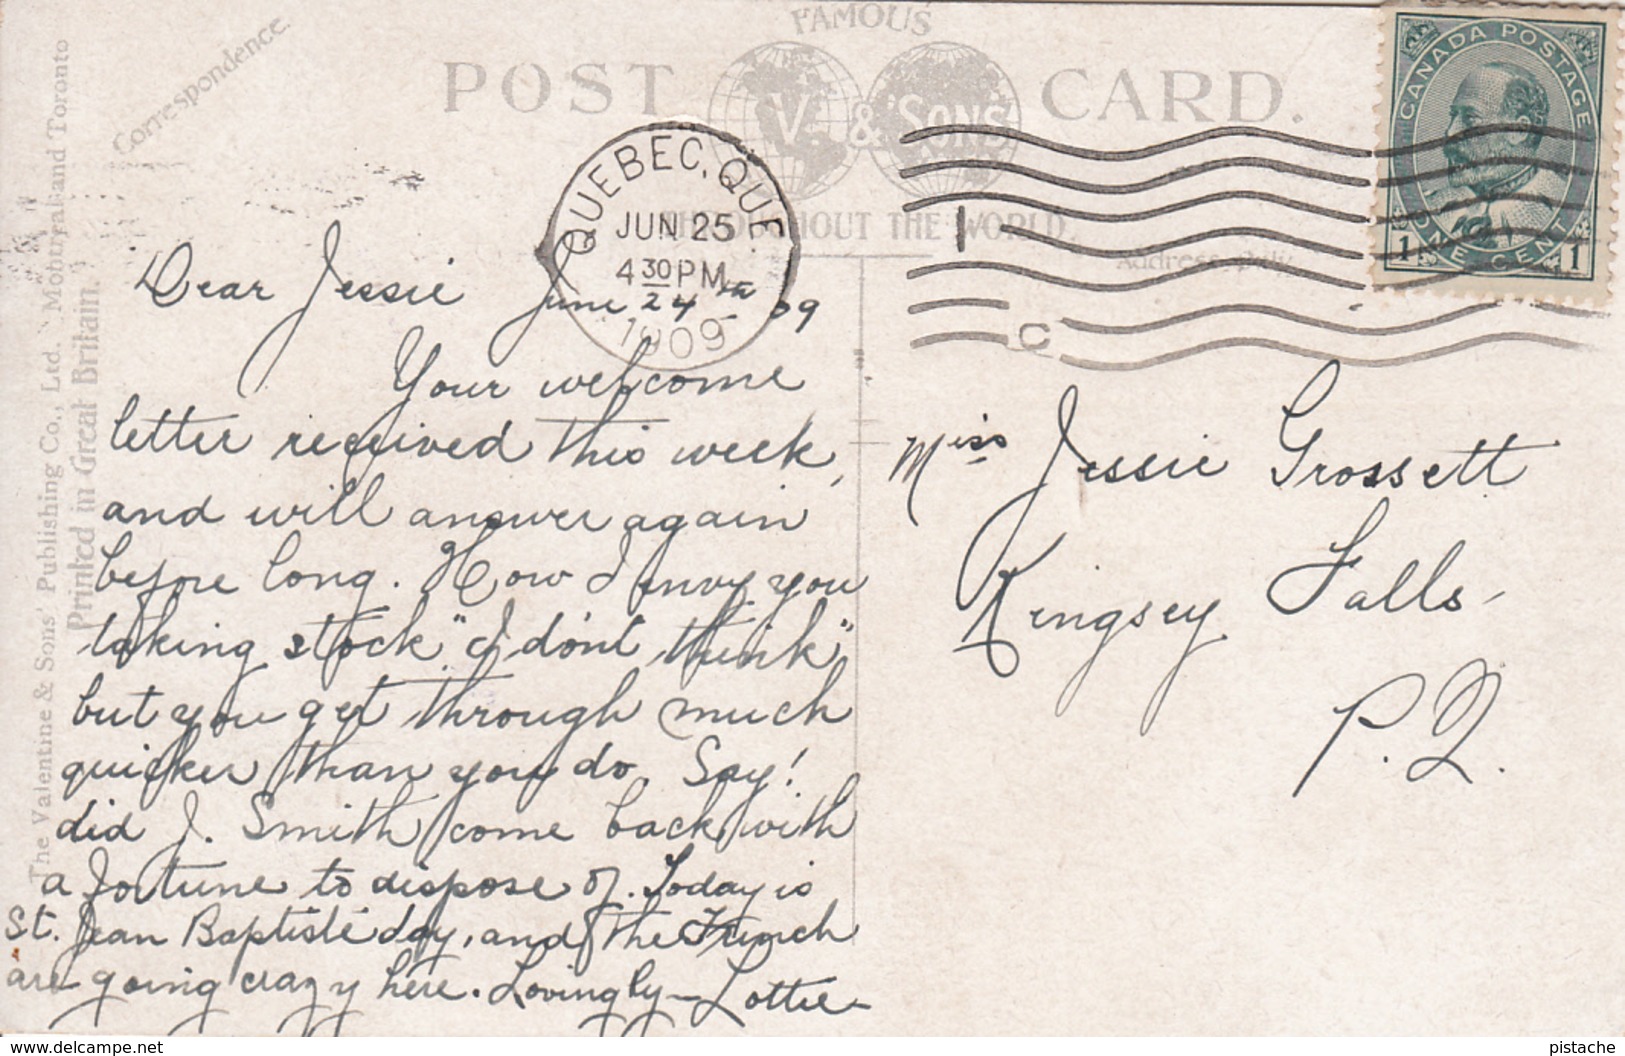 Correspondence.
FAMOUS
POST CARD.
V. & SONS
THROUGHOUT THE WORLD.
Address, only
CANADA POSTAGE
1 ONE CENT 1
QUEBEC, QUE
JUN 25
4 30 PM
1909
C
The Valentine & Sons' Publishing Co., Ltd. Montreal and Toronto
Printed in Great Britain.
Dear Jessie June 24th 09
Your welcome
letter received this week,
and will answer again
before long. How I envy you
taking stock "I don't think",
but you get through much
quicker than you do. Say!
did J. Smith come back with
a fortune to dispose of. Today is
St. Jean Baptiste day, and the French
are going crazy here. Lovingly - Lottie -
Miss Jessie Grossett
Kingsey Falls
P.Q.
www.delcampe.net
pistache